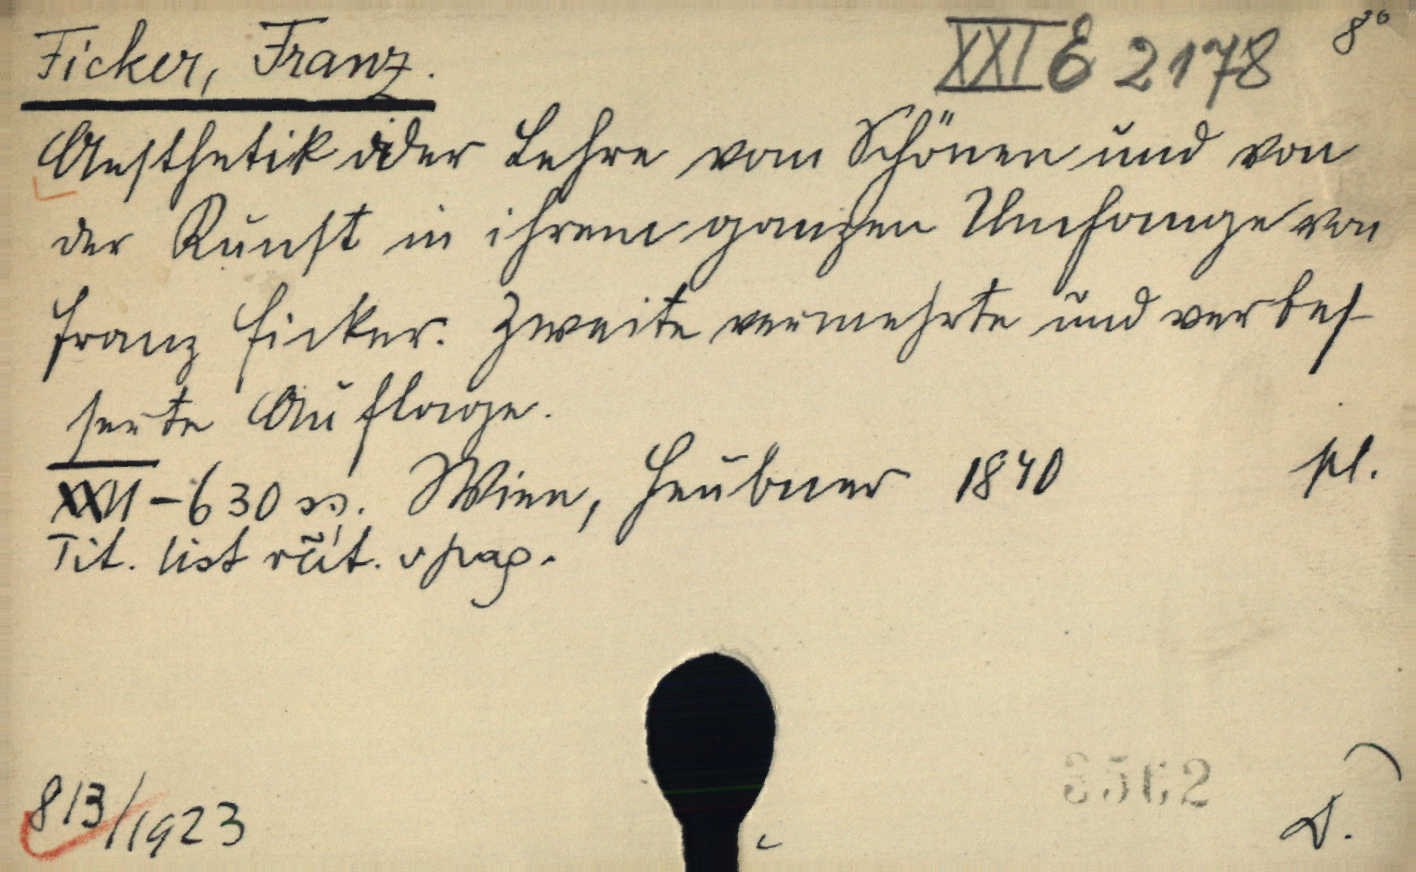 Ficker, Franz.
XXI E 2178
8°
Aesthetik oder Lehre vom Schönen und von
der Kunst in ihrem ganzen Umfange von
Franz Ficker. Zweite vermehrte und verbes-
serte Auflage.
XVI-630 ss. Wien, Heubner 1840
pl.
Tit. list rčit. v pag.
3562
813/1923
D.